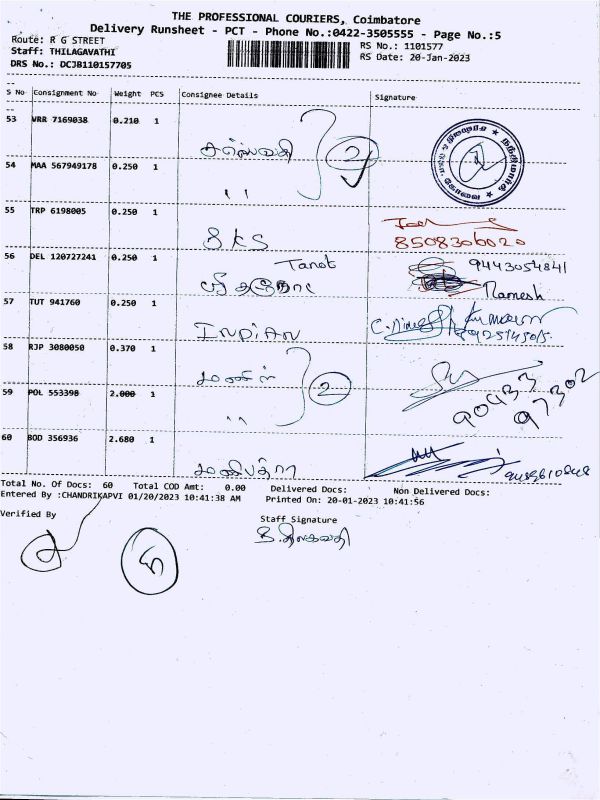 THE PROFESSIONAL COURIERS, Coimbatore
Delivery Runsheet - PCT - Phone No.:0422-3505555 - Page No.:5
Route: R G STREET
Staff: THILAGAVATHI
DRS No.: DCJB110157705
RS No.: 1101577
RS Date: 20-Jan-2023
S No Consignment No Weight PCS Consignee Details Signature
53 WRR 7169038 0.210 1
சரஸ்வதி 2
54 MAA 567949178 0.250 1
" "
55 TRP 6198005 0.250 1
SKS 8508306020
56 DEL 120727241 0.250 1
9443054841
Ramesh
57 TUT 941760 0.250 1
INDIAN
58 RJP 3080050 0.370 1
2
59 POL 553398 2.000 1
" "
60 BOD 356936 2.680 1
Total No. Of Docs: 60 Total COD Amt: 0.00 Delivered Docs: Non Delivered Docs:
Entered By :CHANDRIKAPVI 01/20/2023 10:41:38 AM Printed On: 20-01-2023 10:41:56
Verified By
Staff Signature